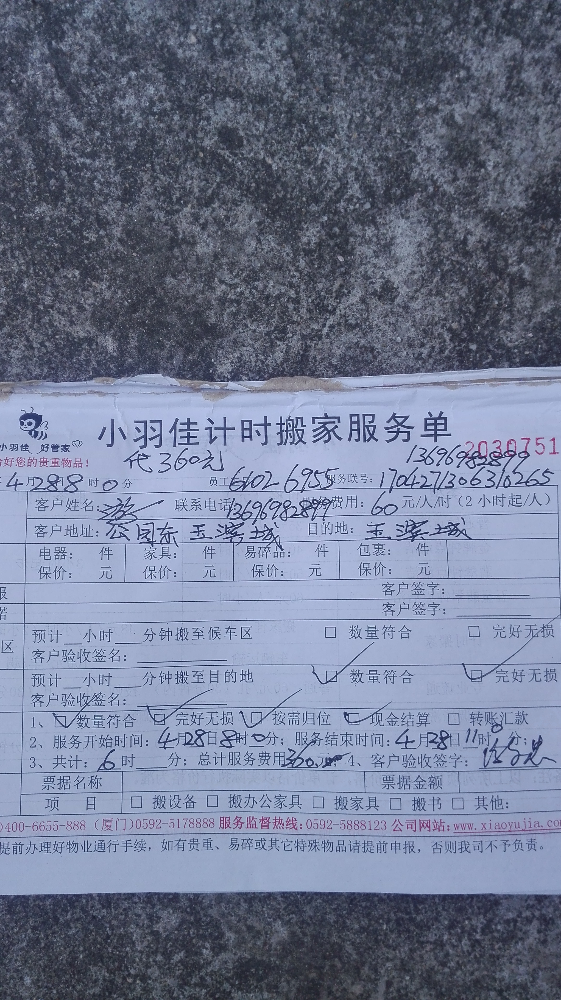 小羽佳 好管家
小羽佳计时搬家服务单
好您的贵重物品!
2030751
代360元 13696982899
4月28 8时0分 员工 6102 6955 服务联号: 1704271306310265
客户姓名: 游 联系电话 13696982899 费用: 60元/人/时(2小时起/人)
客户地址: 公园东 玉滨城 目的地: 玉滨城
电器: 件 家具: 件 易碎品: 件 包裹: 件
保价: 元 保价: 元 保价: 元 保价: 元
客户签字:
客户签字:
区 预计__小时__分钟搬至候车区 □ 数量符合 □ 完好无损
客户验收签名:
预计__小时__分钟搬至目的地 ☑ 数量符合 ☑ 完好无损
客户验收签名:
1、☑数量符合 ☑完好无损 ☑按需归位 ☑现金结算 □转账汇款
2、服务开始时间:4月28日8时0分;服务结束时间:4月28日11时0分;
3、共计:6时__分;总计服务费用360.00 4、客户验收签字:
票据名称 票据金额
项 目 □搬设备 □搬办公家具 □搬家具 □搬书 □其他:
)400-6655-888 (厦门)0592-5178888 服务监督热线:0592-5888123 公司网站:www.xiaoyujia.com
提前办理好物业通行手续,如有贵重、易碎或其它特殊物品请提前申报,否则我司不予负责。